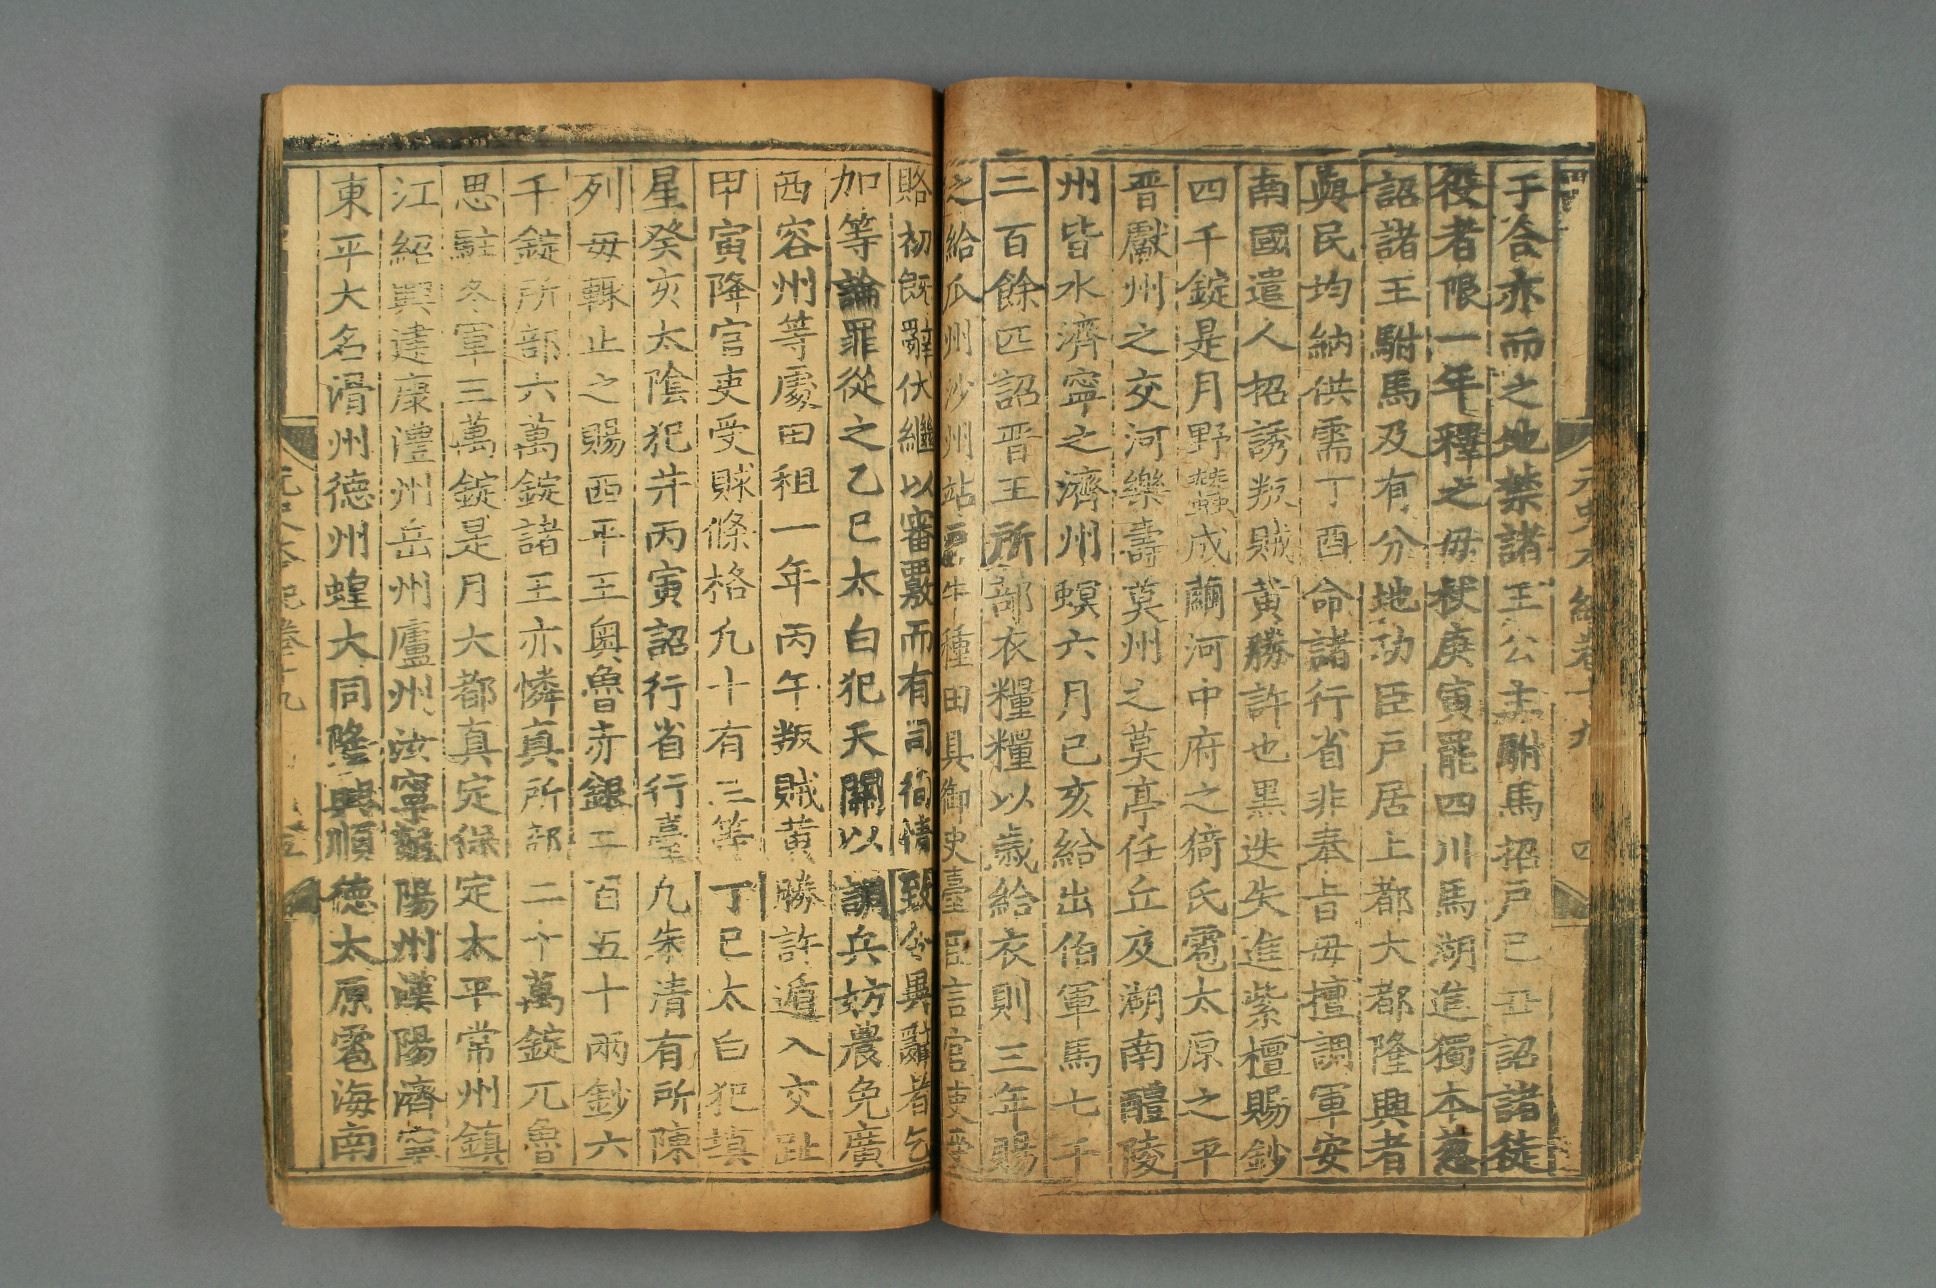 元史本紀卷十九 四
于合亦而之地禁諸王公主駙馬招戶己丑詔諸徒
役者限一年釋之毋杖庚寅罷四川馬湖進獨本葱
詔諸王駙馬及有分地功臣戶居上都大都隆興者
與民均納供需丁酉命諸行省非奉旨毋擅調軍安
南國遣人招誘叛賊黃勝許也黑迭失進紫檀賜鈔
四千錠是月野蠶成繭河中府之猗氏雹太原之平
晋獻州之交河樂壽莫州之莫亭任丘及湖南醴陵
州皆水濟寧之濟州螟六月己亥給出伯軍馬七千
二百餘匹詔晋王所部衣糧糧以歲給衣則三年賜
之給瓜州沙州站戶牛種田具御史臺臣言官吏受
賂初旣辭伏繼以審覈而有司徇情致令異辭者乞
加等論罪從之乙巳太白犯天關以調兵妨農免廣
西容州等處田租一年丙午叛賊黃勝許遁入交趾
甲寅降官吏受賕條格凡十有三等丁巳太白犯塡
星癸亥太陰犯井丙寅詔行省行臺凡朱清有所陳
列毋輒止之賜西平王奧魯赤銀二百五十兩鈔六
千錠所部六萬錠諸王亦憐真所部二十萬錠兀魯
思駐冬軍三萬錠是月大都真定保定太平常州鎮
江紹興建康澧州岳州廬州汝寧龍陽州漢陽濟寧
東平大名滑州德州蝗大同隆興順德太原雹海南
元史本紀卷十九 五